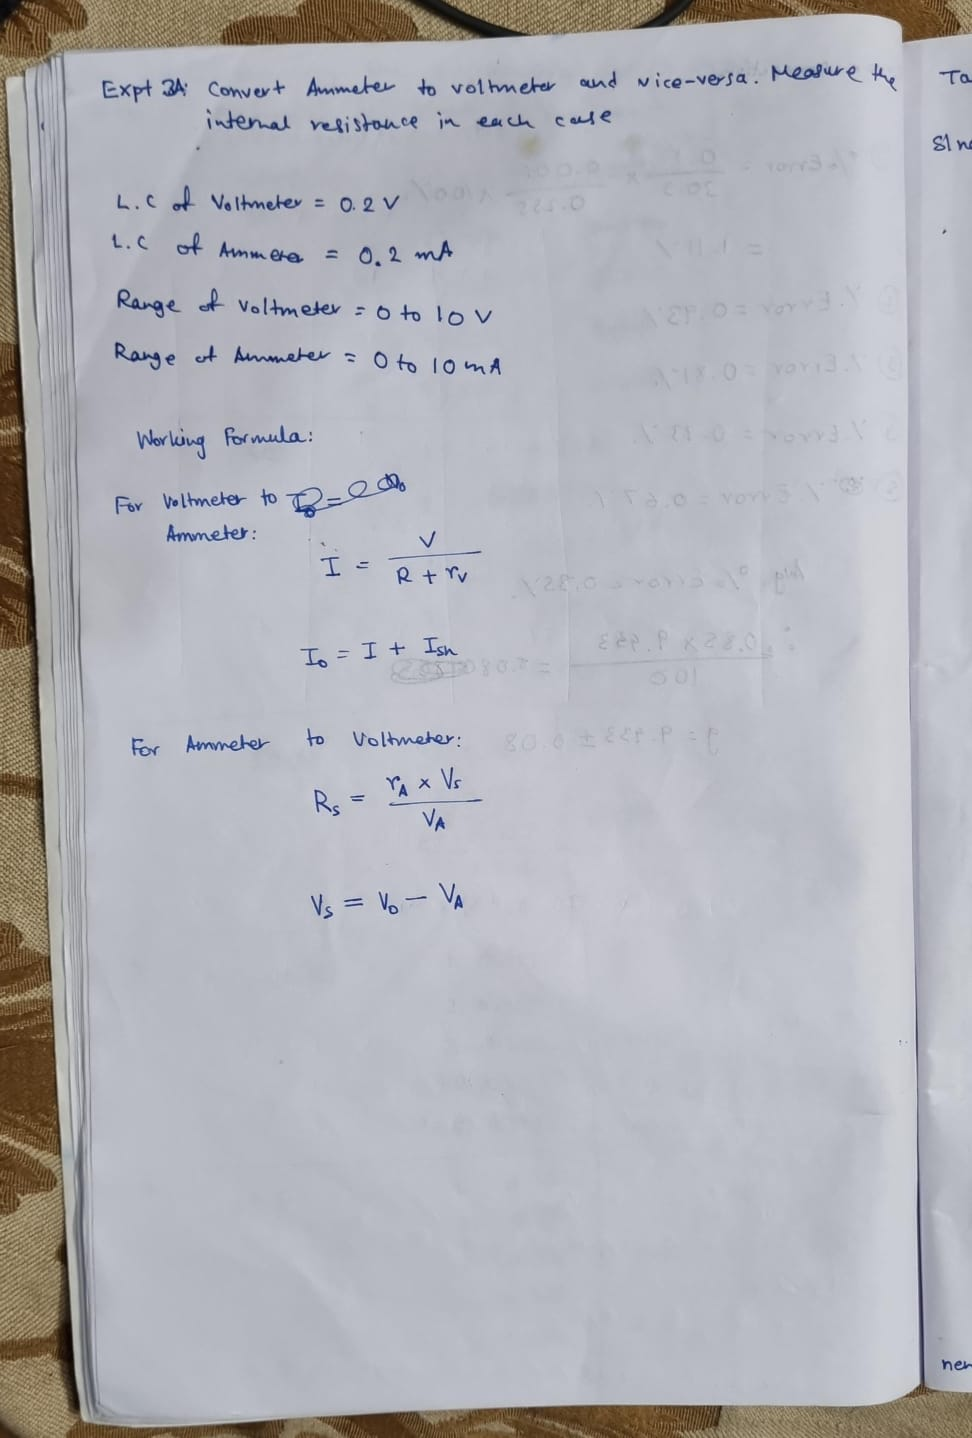 Expt 3A: Convert Ammeter to voltmeter and vice-versa. Measure the
internal resistance in each case
L.C of Voltmeter = 0.2 V
L.C of Ammeter = 0.2 mA
Range of voltmeter = 0 to 10 V
Range of Ammeter = 0 to 10 mA
Working Formula:
For Voltmeter to
Ammeter:
I = V / (R + rv)
I₀ = I + Ish
For Ammeter to Voltmeter:
Rs = (rA × Vs) / VA
Vs = V₀ - VA
Ta
Sl no
ner